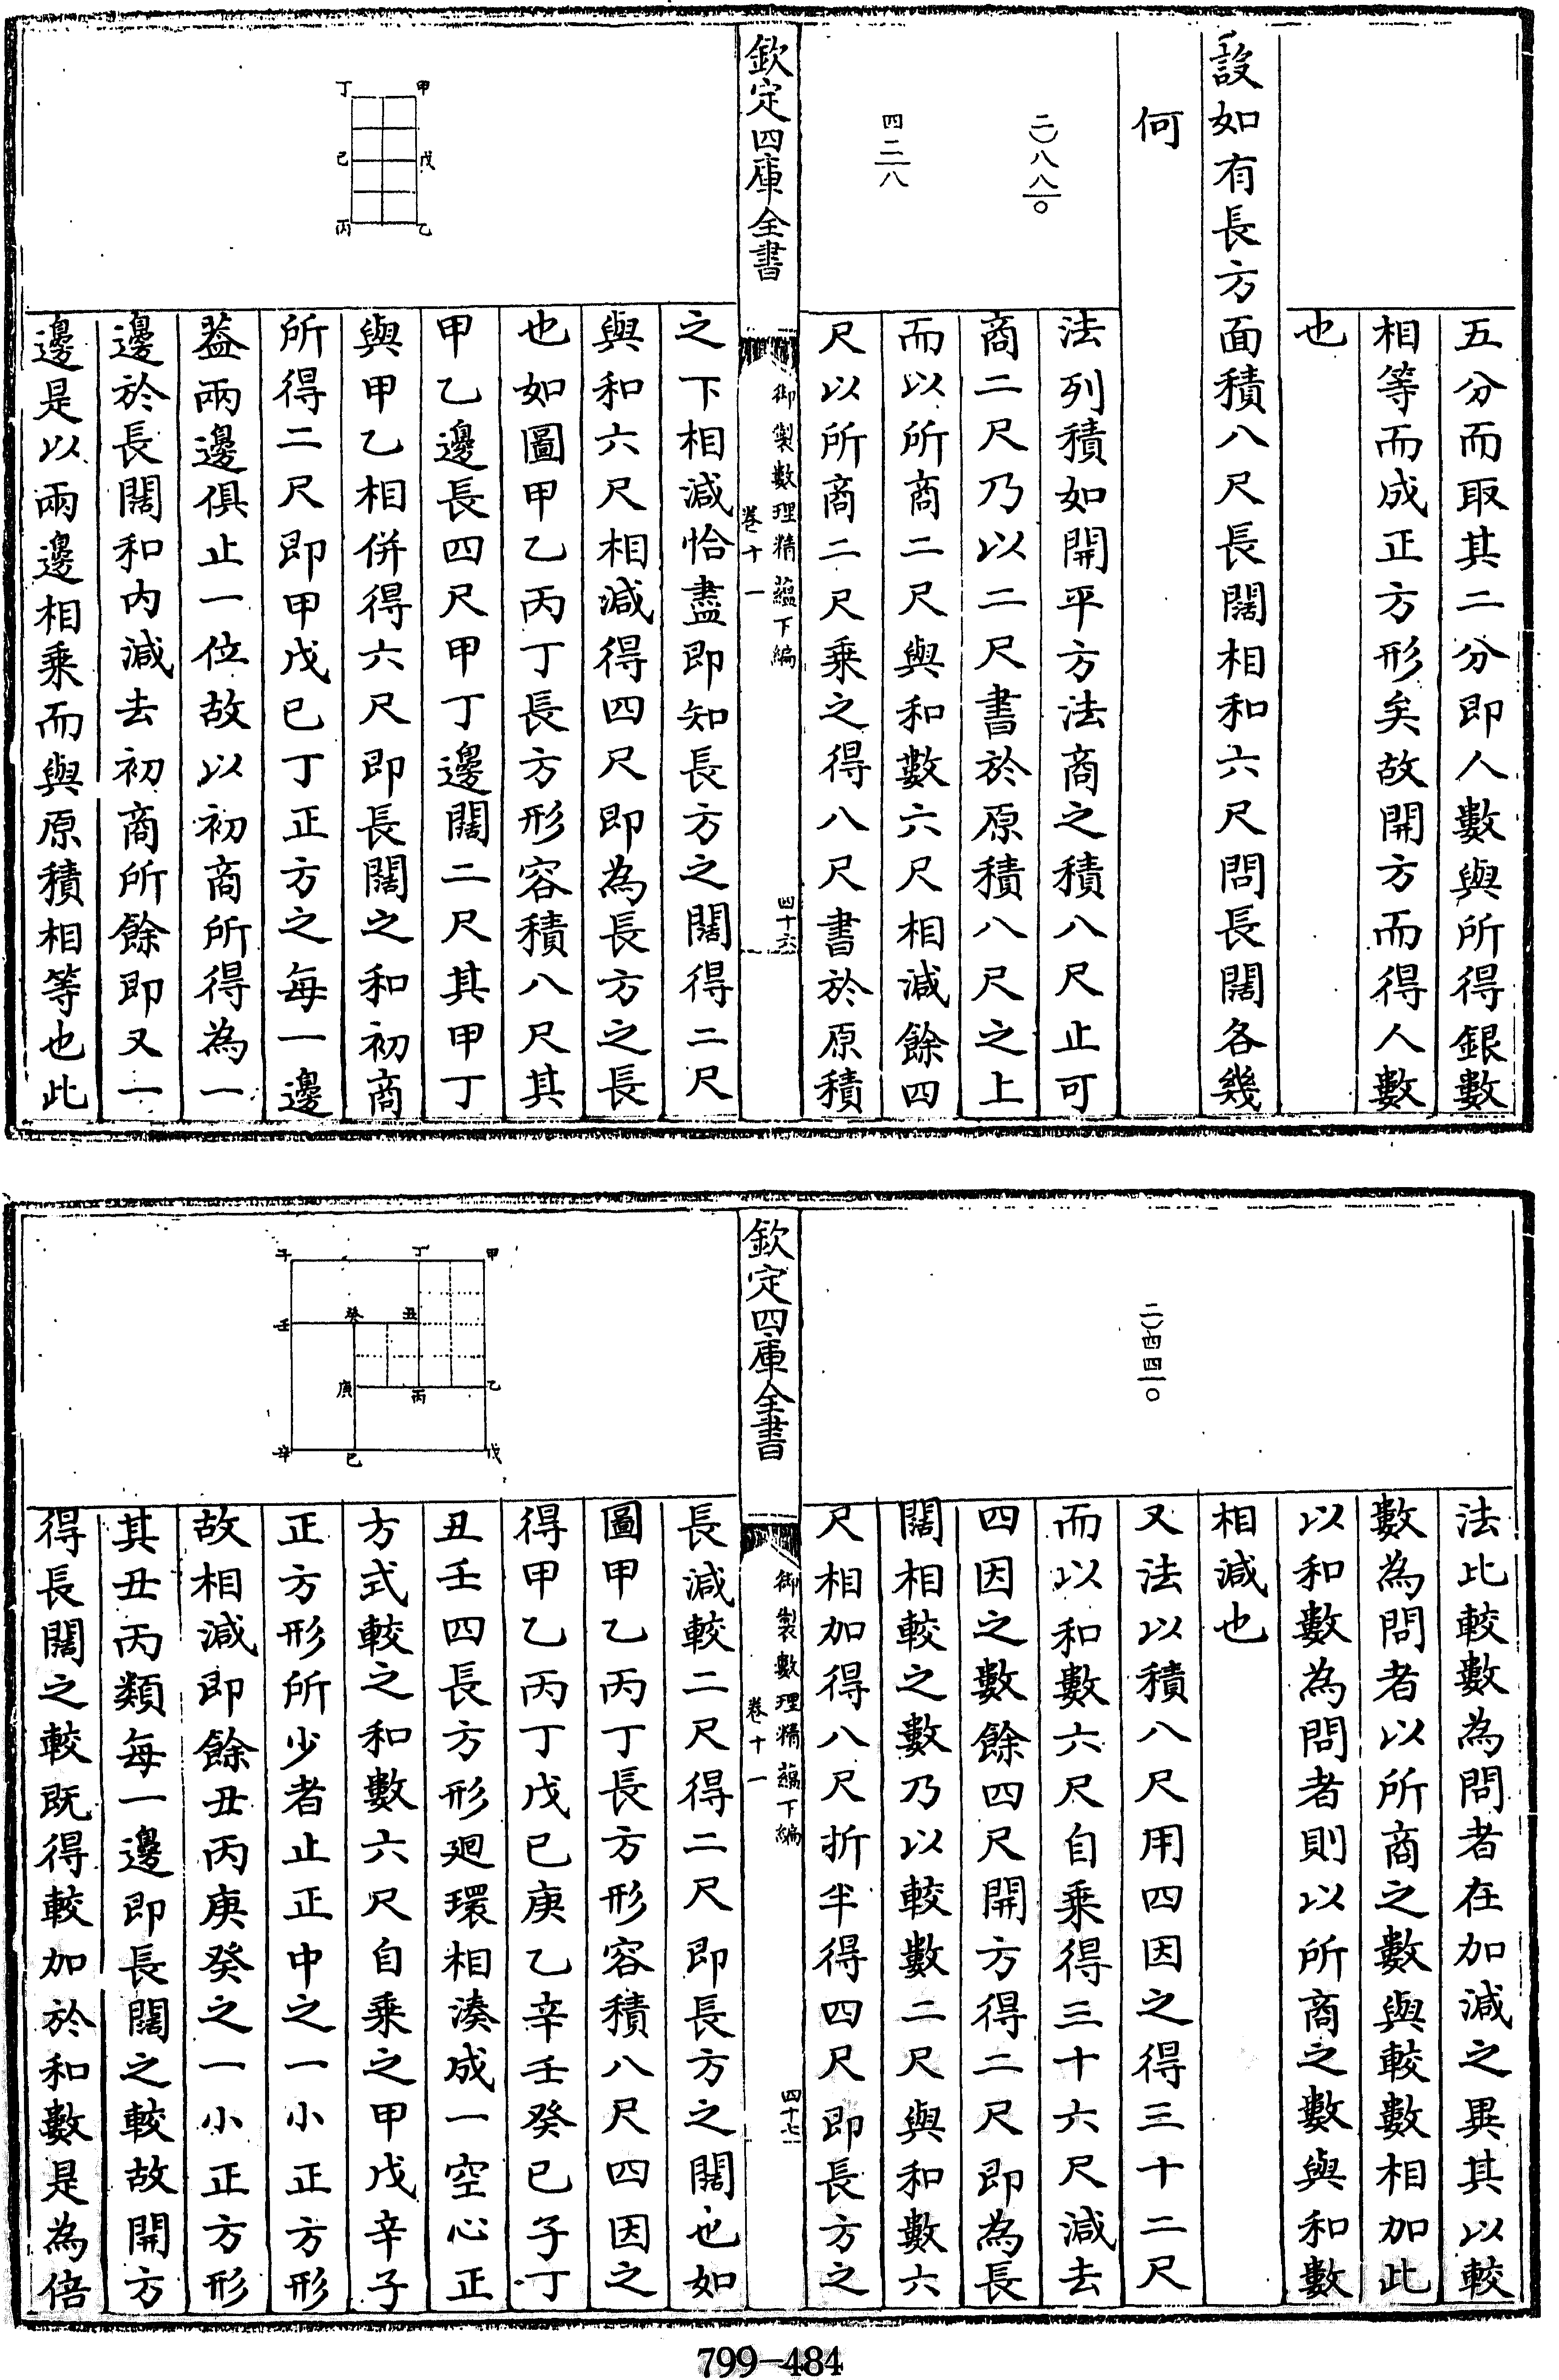 五分而取其二分即人數與所得銀數
相等而成正方形矣故開方而得人數
也
設如有長方面積八尺長闊相和六尺問長闊各幾
何
二〇八八〇
法列積如開平方法商之積八尺止可
商二尺乃以二尺書於原積八尺之上
四二八
而以所商二尺與和數六尺相減餘四
尺以所商二尺乘之得八尺書於原積
欽定四庫全書
御製數理精蘊下編
卷十一
四十六
之下相減恰盡即知長方之闊得二尺
與和六尺相減得四尺即為長方之長
也如圖甲乙丙丁長方形容積八尺其
甲乙邊長四尺甲丁邊闊二尺其甲丁
與甲乙相併得六尺即長闊之和初商
所得二尺即甲戊已丁正方之每一邊
葢兩邊俱止一位故以初商所得為一
邊於長闊和內減去初商所餘即又一
邊是以兩邊相乘而與原積相等也此
甲
丁
戊
己
乙
丙
法比較數為問者在加減之異其以較
數為問者以所商之數與較數相加此
以和數為問者則以所商之數與和數
相減也
二〇四四〇
又法以積八尺用四因之得三十二尺
而以和數六尺自乘得三十六尺減去
四因之數餘四尺開方得二尺即為長
闊相較之數乃以較數二尺與和數六
尺相加得八尺折半得四尺即長方之
欽定四庫全書
御製數理精蘊下編
卷十一
四十七
長減較二尺得二尺即長方之闊也如
圖甲乙丙丁長方形容積八尺四因之
得甲乙丙丁戊已庚乙辛壬癸已子丁
丑壬四長方形廻環相湊成一空心正
方式較之和數六尺自乘之甲戊辛子
正方形所少者止正中之一小正方形
故相減即餘丑丙庚癸之一小正方形
其丑丙類每一邊即長闊之較故開方
得長闊之較既得較加於和數是為倍
甲
丁
子
丑
癸
壬
乙
丙
庚
戊
已
辛
799-484